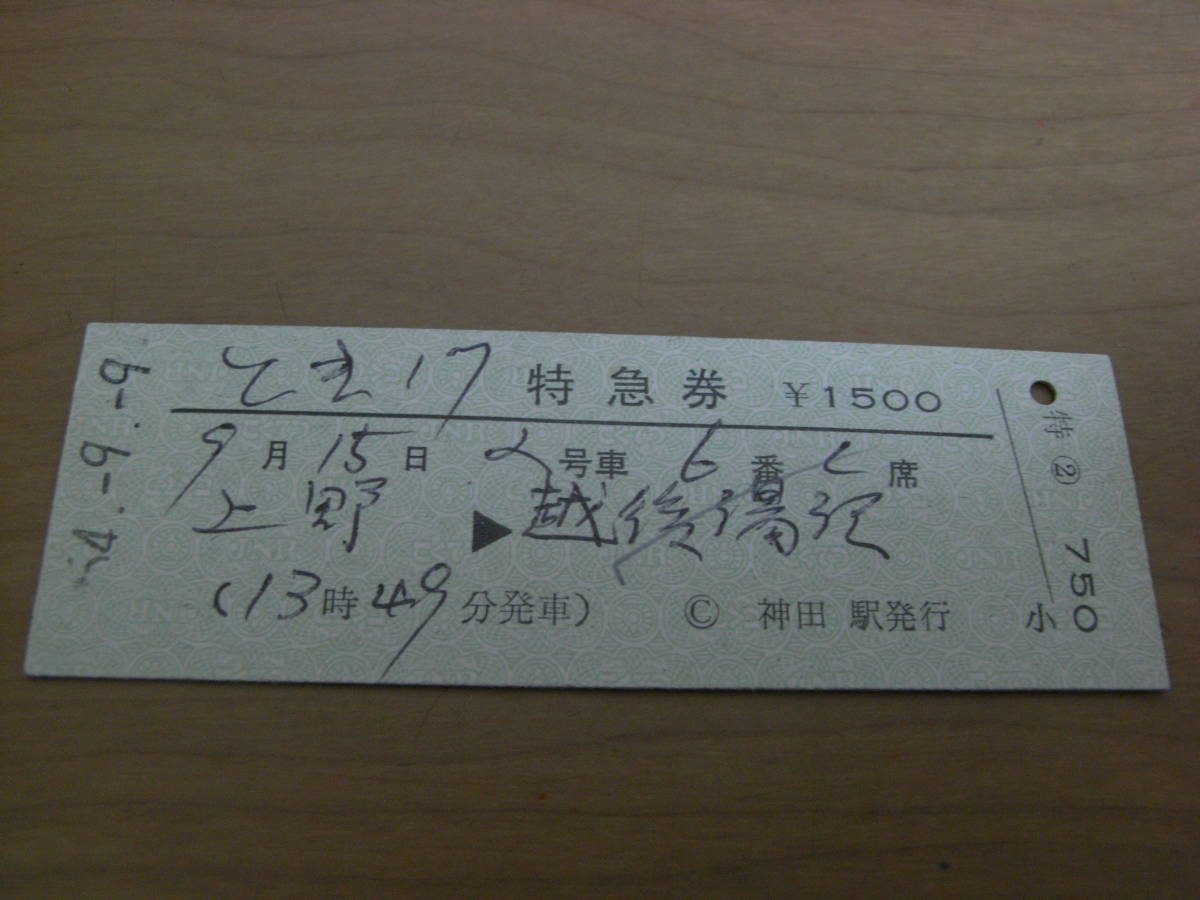 とき17 特急券 ￥1500
9月15日 2号車 6番C席
上野 ▶ 越後湯沢
(13時49分発車) Ⓒ 神田 駅発行
-9.-9
特②
小 750